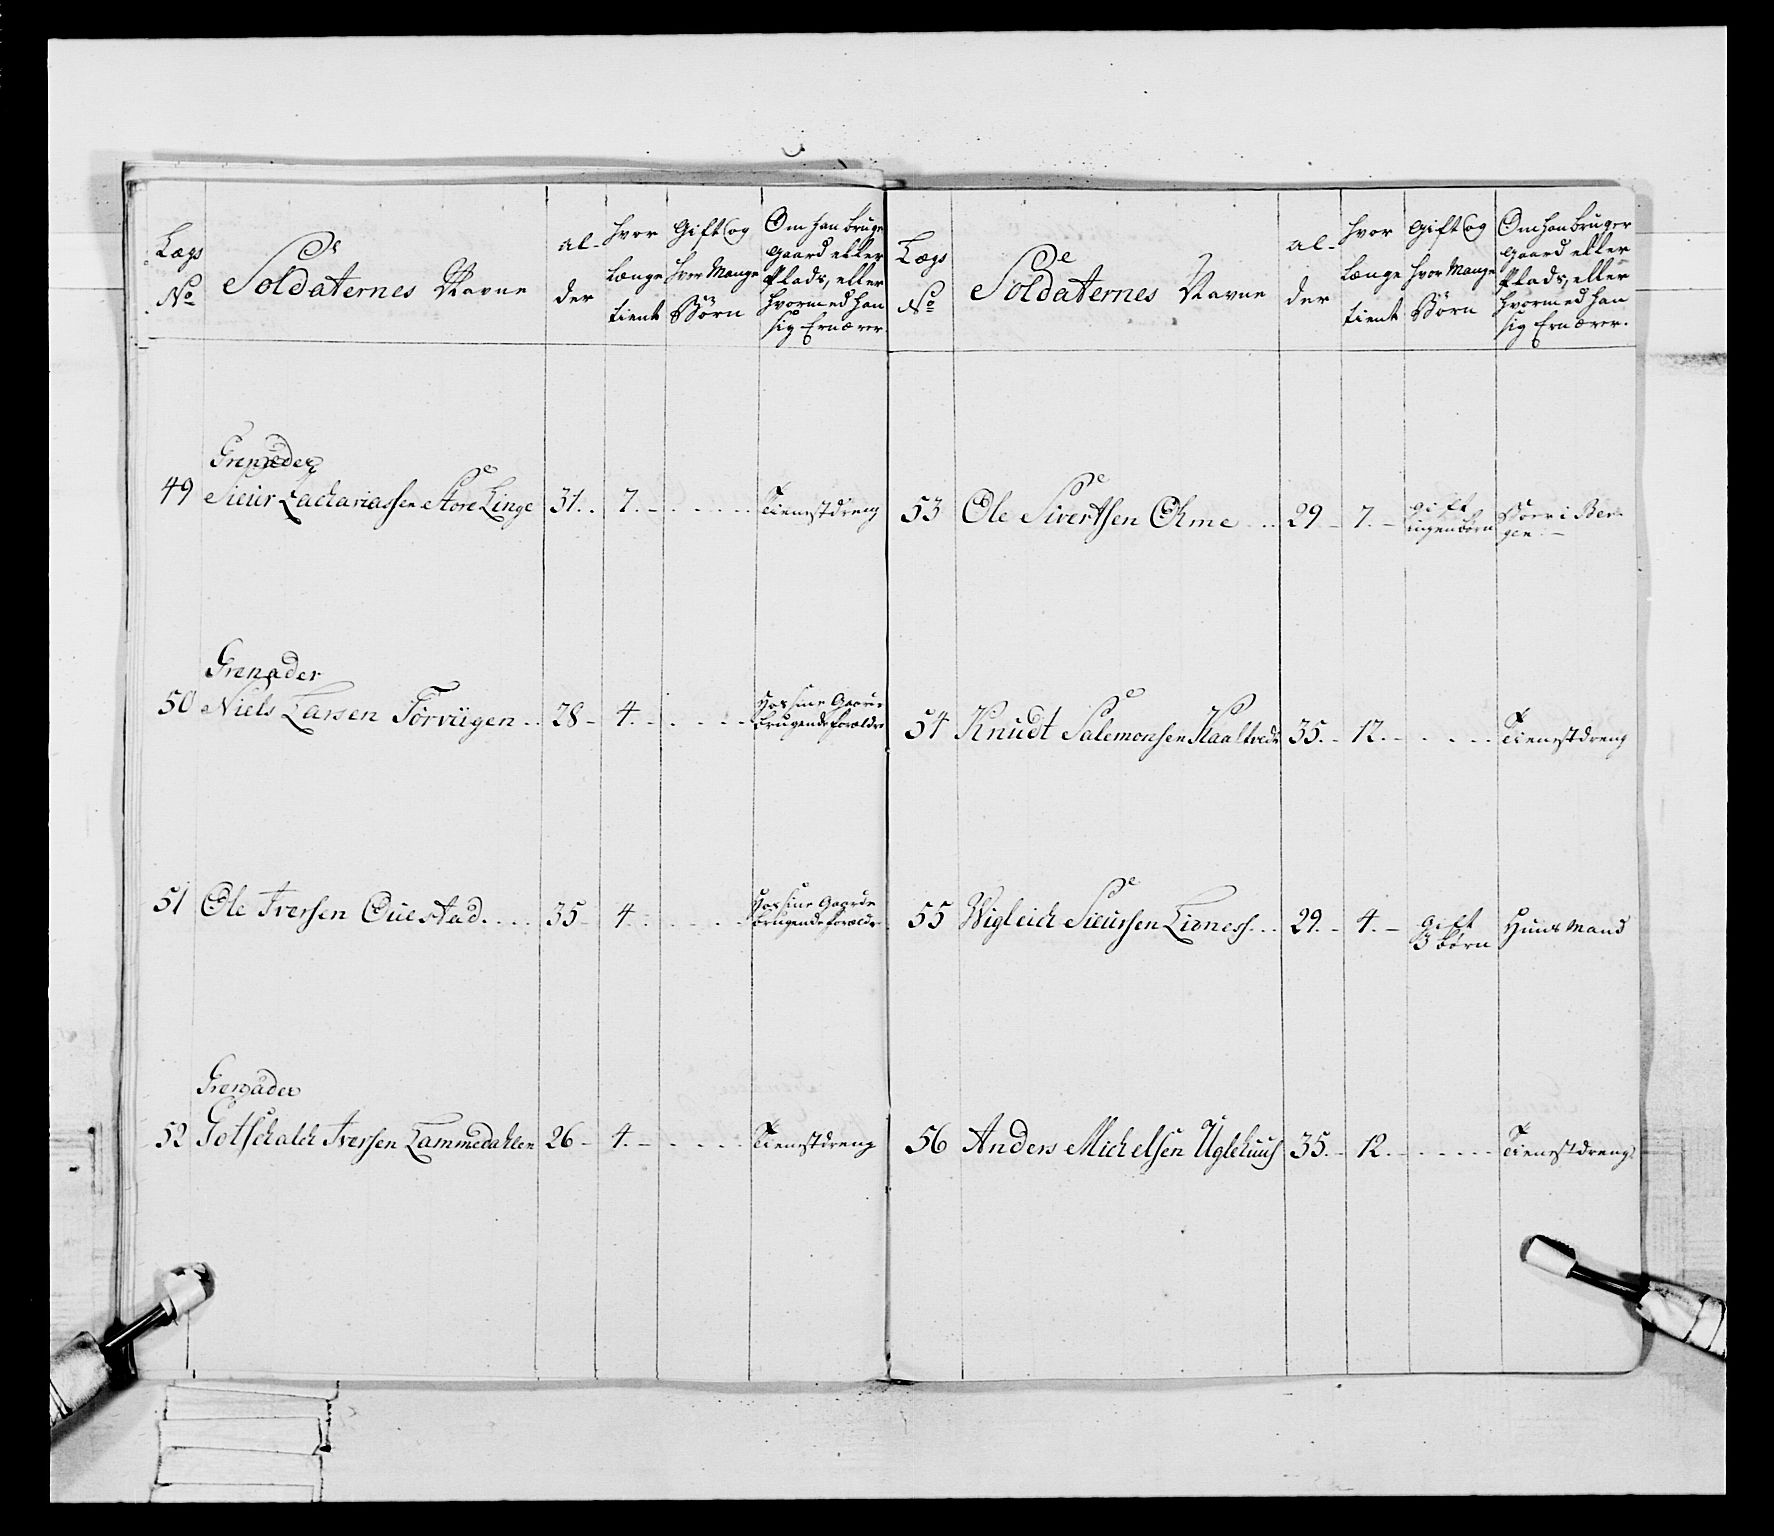 Lægs No
Soldaternes Navne
Al-
der
hvor
længe
tient
Gift og
hvor Mange
Börn
Om han bruger
Gaard eller
Plads, eller
hvormed han
sig Ernærer.
Grenader
49 Siur Zachariassen Store Linge 31.. 7. Tienestdreng
Grenader
50 Niels Larsen Förvügen .. 28 - 4. - hos sine Gaard
brugende forældre
51 Ole Iversen Ouestad .... 35 - 4. hos sine Gaard
brugende forældre
Grenader
52 Gotschalch Iversen Lammedahlen 26 - 4. - Tienestdreng
Lægs No
Soldaternes Navne
Al-
der
hvor
længe
tient
Gift og
hvor Mange
Börn
Om han bruger
Gaard eller
Plads, eller
hvormed han
sig Ernærer.
53 Ole Sivertsen Ohme ... 29 - 7. - gift
ingen börn i Ber-
gen. -
54 Knudt Salemonsen Kaaltvedt 35. - 12. - Tienestdreng
55 Wigleich Siurssen Lioness... 29. - 4. - gift
3 börn Huusmand
56 Anders Michelsen Uglehuus 35. - 12. - Tienestdreng